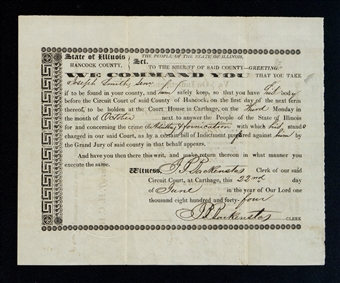 State of Illinois, THE PEOPLE OF THE STATE OF ILLINOIS,
HANCOCK COUNTY, Sct. TO THE SHERIFF OF SAID COUNTY—GREETING:
WE COMMAND YOU THAT YOU TAKE
Joseph Smith
if to be found in your county, and him safely keep, so that you have his body
before the Circuit Court of said County of Hancock, on the first day of the next term
thereof, to be holden at the Court House in Carthage, on the Third Monday in
the month of October next to answer the People of the State of Illinois
of and concerning the crime of Adultery & fornication with which he stands
charged in our said Court, as by a certain bill of Indictment preferred against him by
the Grand Jury of said county in that behalf appears.
And have you then there this writ, and make return thereon in what manner you
execute the same.
Witness, J B Backenstos Clerk of our said
Circuit Court, at Carthage, this 22nd day
of June in the year of Our Lord one
thousand eight hundred and forty-four
J B Backenstos CLERK